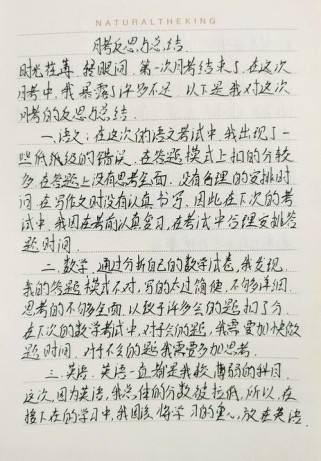 NATURALTHEKING
月考反思与总结
时光荏苒,转眼间,第一次月考结束了,在这次
月考中,我暴露了许多不足,以下是我对这次
月考的反思与总结.
一.语文:在这次的语文考试中,我出现了一
些低低级的错误,在答题模式上扣的分较
多,在答题上没有思考全面,没有合理的安排时
间,在写作文时没有认真书写,因此在下次的考
试中,我因在考前认真复习,在考试中合理安排答
题时间.
二.数学,通过分析自己的数学试卷,我发现,
我的答题模式不对,写的太过简便,不够详细,
思考的不够全面,以致于许多会的题扣了分,
在下次的数学考试中,对于会的题,我需要加快做
题时间,对于不会的题我需要多加思考.
三.英语,英语一直都是我较薄弱的科目,
这次,因为英语,我总体的分数被拉低,所以,在
接下在的学习中,我因该将学习的重心,放在英语